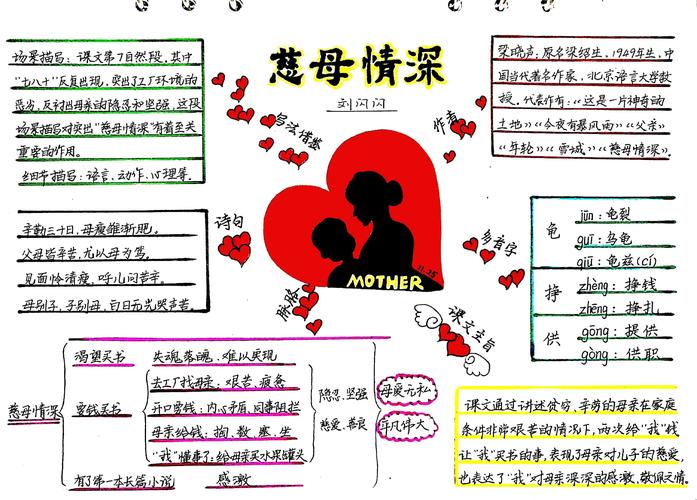 慈母情深
刘闪闪
场景描写：课文第7自然段，其中
"七八十"反复出现，突出了工厂环境的
恶劣，反衬出母亲的隐忍和坚强，这段
场景描写对突出"慈母情深"有着至关
重要的作用。
细节描写：语言、动作、心理等。
写法借鉴
作者
梁晓声，原名梁绍生，1949年生，中
国当代著名作家，北京语言大学教
授。代表作有：《这是一片神奇的
土地》《今夜有暴风雨》《父亲》
《年轮》《雪城》《慈母情深》。
诗句
辛勤三十日，母瘦雏渐肥。
父母皆辛苦，尤以母为笃。
见面怜清瘦，呼儿问苦辛。
母别子，子别母，白日无光哭声苦。
MOTHER
11.25
多音字
龟
jūn：龟裂
guī：乌龟
qiū：龟兹(cí)
挣
zhèng：挣钱
zhēng：挣扎
供
gōng：提供
gòng：供职
脉络
课文主旨
慈母情深
渴望买书
失魂落魄、难以实现
要钱买书
去工厂找母亲：艰苦、疲惫
开口要钱：内心矛盾、同事阻拦
母亲给钱：掏、数、塞、坐
"我"懂事了：给母亲买水果罐头
有了第一本长篇小说
感激
隐忍、坚强
慈爱、善良
母爱无私
平凡伟大
课文通过讲述贫穷、辛劳的母亲在家庭
条件非常艰苦的情况下，两次给"我"钱
让"我"买书的事，表现了母亲对儿子的慈爱，
也表达了"我"对母亲深深的感激、敬佩之情。